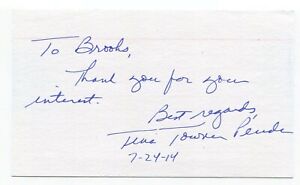 To Brooks,
Thank you for you
interest.
Best regards,
Tina Towner Pender
7-24-14